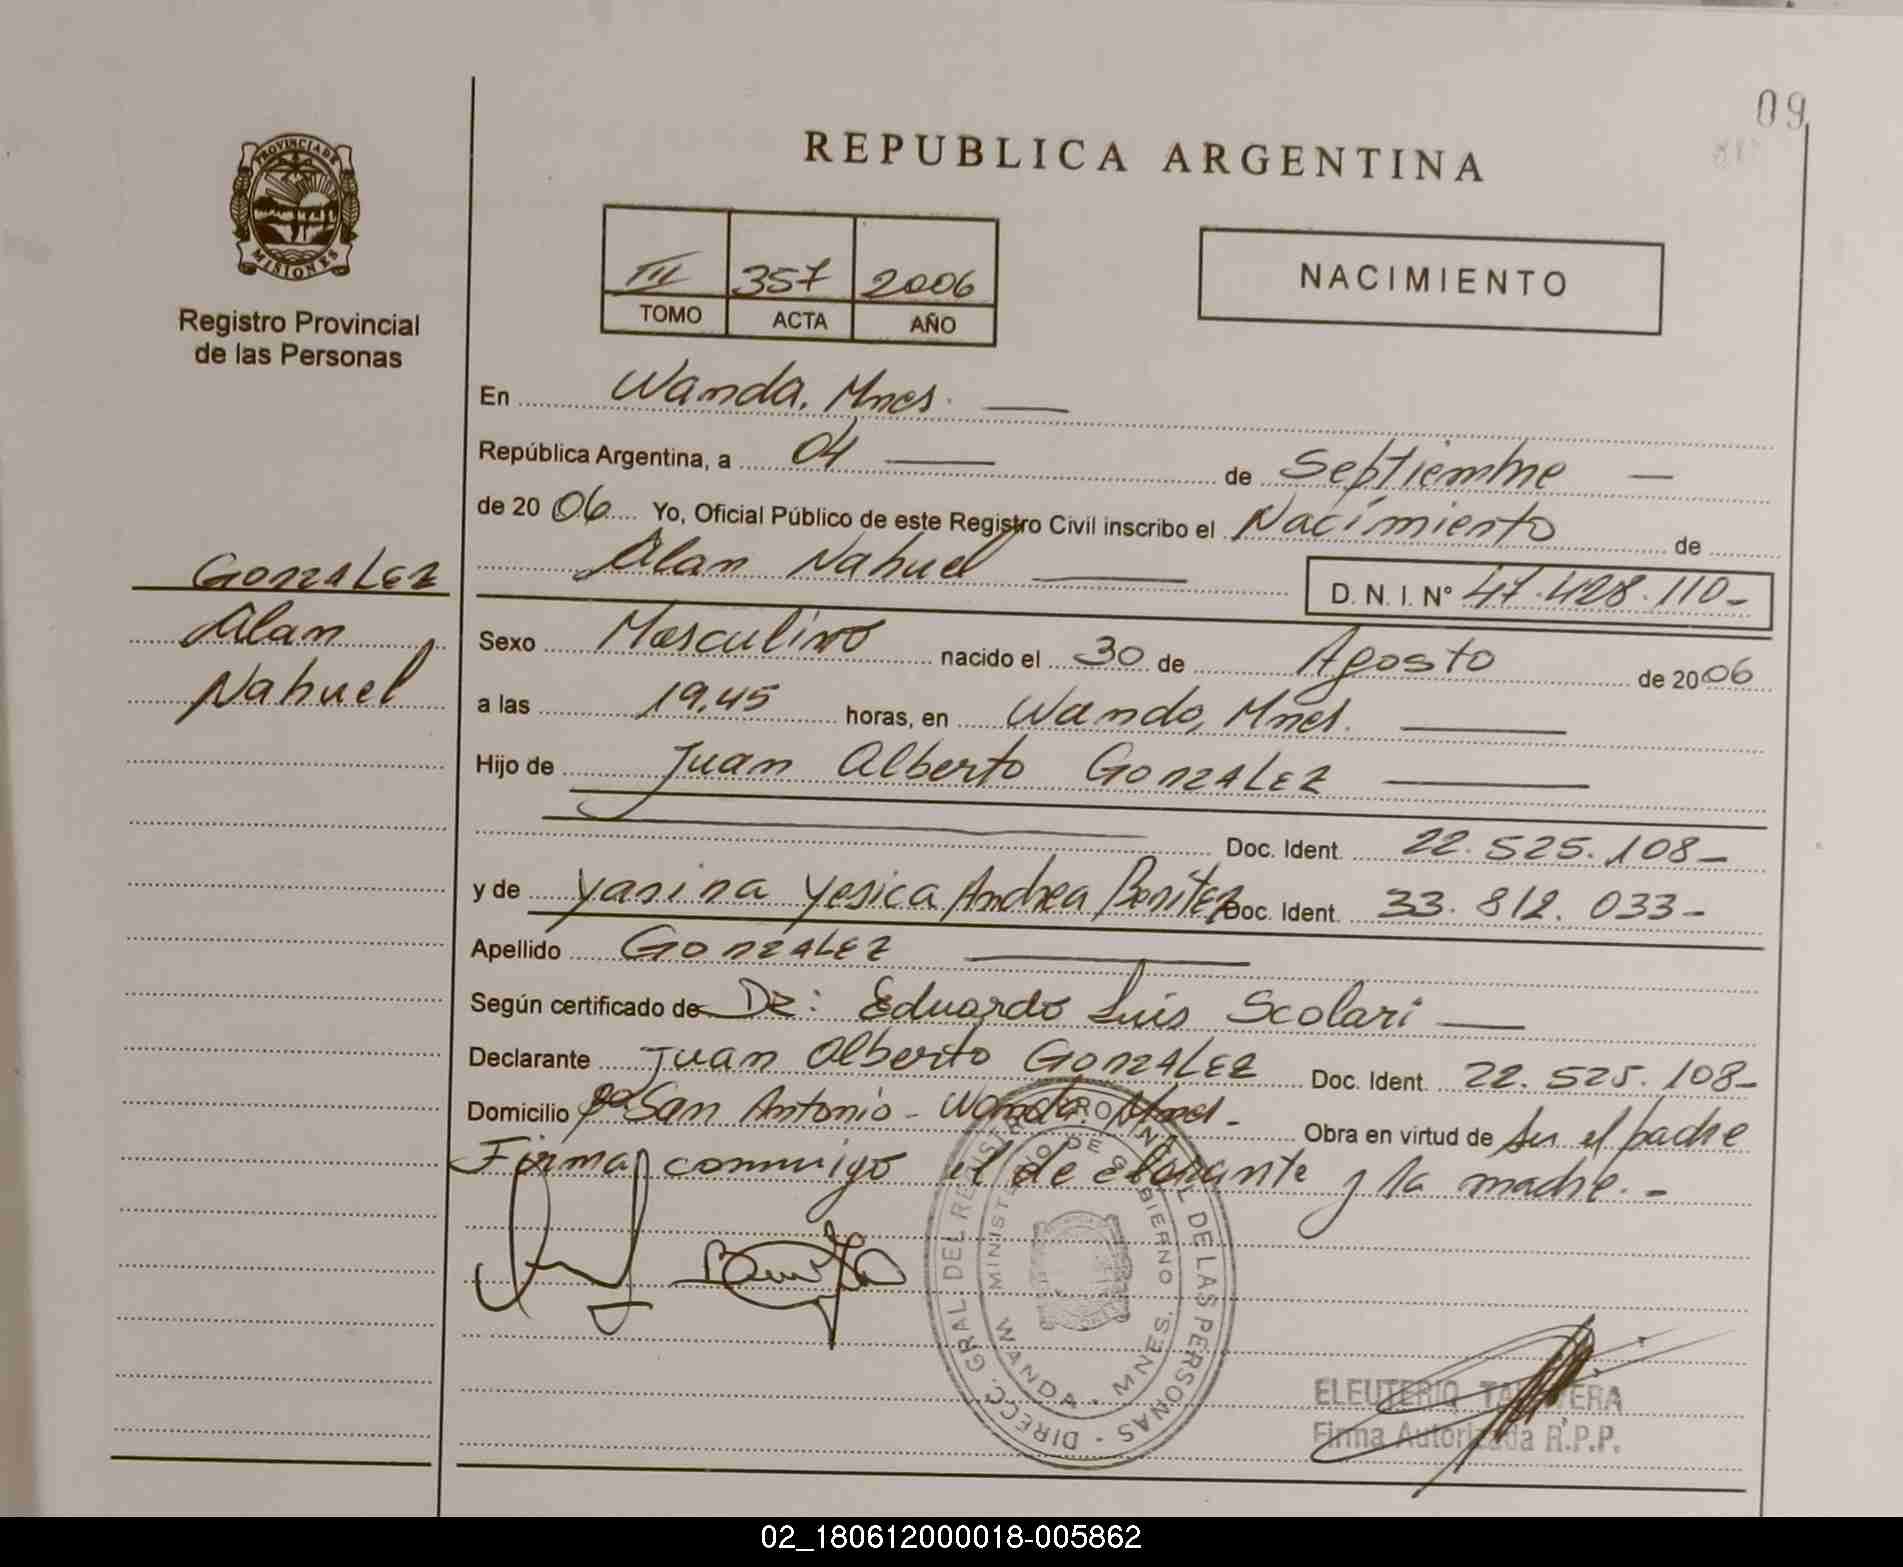 09
REPUBLICA ARGENTINA
PROVINCIA DE MISIONES
Registro Provincial
de las Personas
III 357 2006
TOMO ACTA AÑO
NACIMIENTO
En Wanda, Mnes.
República Argentina, a 04 de Septiembre
de 2006 Yo, Oficial Público de este Registro Civil inscribo el Nacimiento de
Alan Nahuel D. N. I. N° 47.428.110-
GONZALEZ
Alan
Nahuel
Sexo Masculino nacido el 30 de Agosto de 2006
a las 19,45 horas, en Wanda, Mnes.
Hijo de Juan Alberto GONZALEZ
Doc. Ident. 22.525.108-
y de Yanina Yesica Andrea Benitez Doc. Ident. 33.812.033-
Apellido GONZALEZ
Según certificado de Dr: Eduardo Luis Scolari
Declarante Juan Alberto GONZALEZ Doc. Ident. 22.525.108-
Domicilio San Antonio - Wanda. Mnes. - Obra en virtud de ser el padre
Firman conmigo el declarante y la madre.-
DIRECC. GRAL DEL REGISTRO PROVINCIAL DE LAS PERSONAS -
MINISTERIO DE GOBIERNO
WANDA - MNES.
ELEUTERIO TALAVERA
Firma Autorizada R.P.P.
02_180612000018-005862